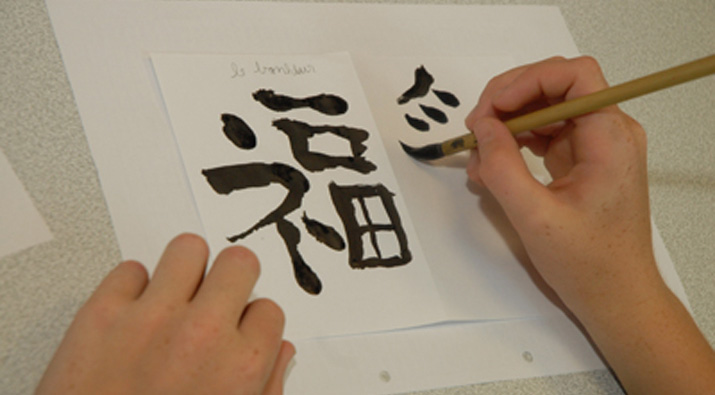 le bonheur
福